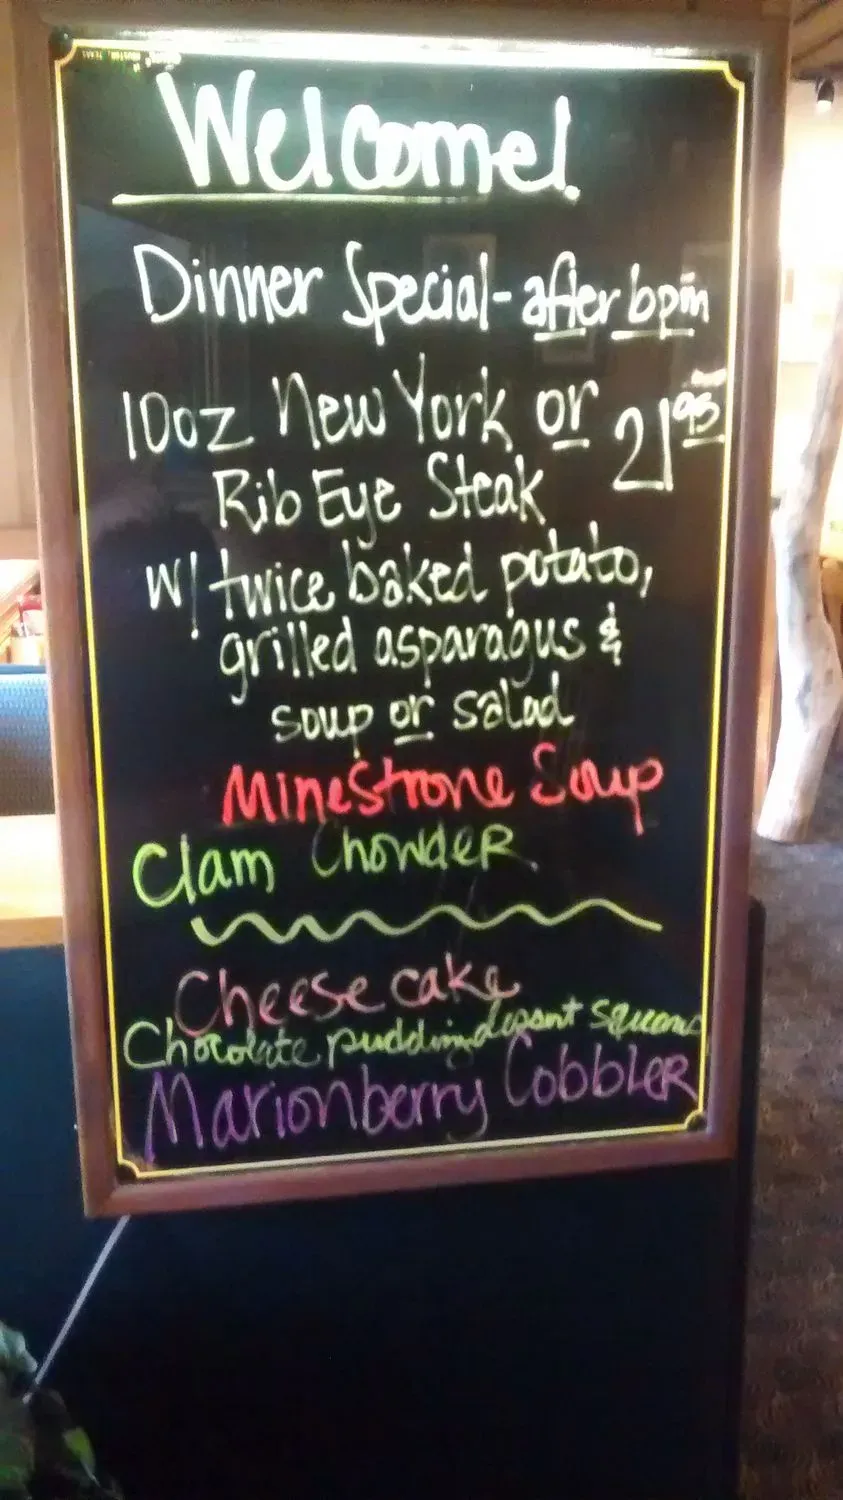 Welcome!
Dinner Special - after 6pm
10oz New York or 21.95
Rib Eye Steak
w/ twice baked potato,
grilled asparagus &
soup or salad
Minestrone Soup
Clam Chowder
Cheese cake
Chocolate pudding dessert squares
Marionberry Cobbler